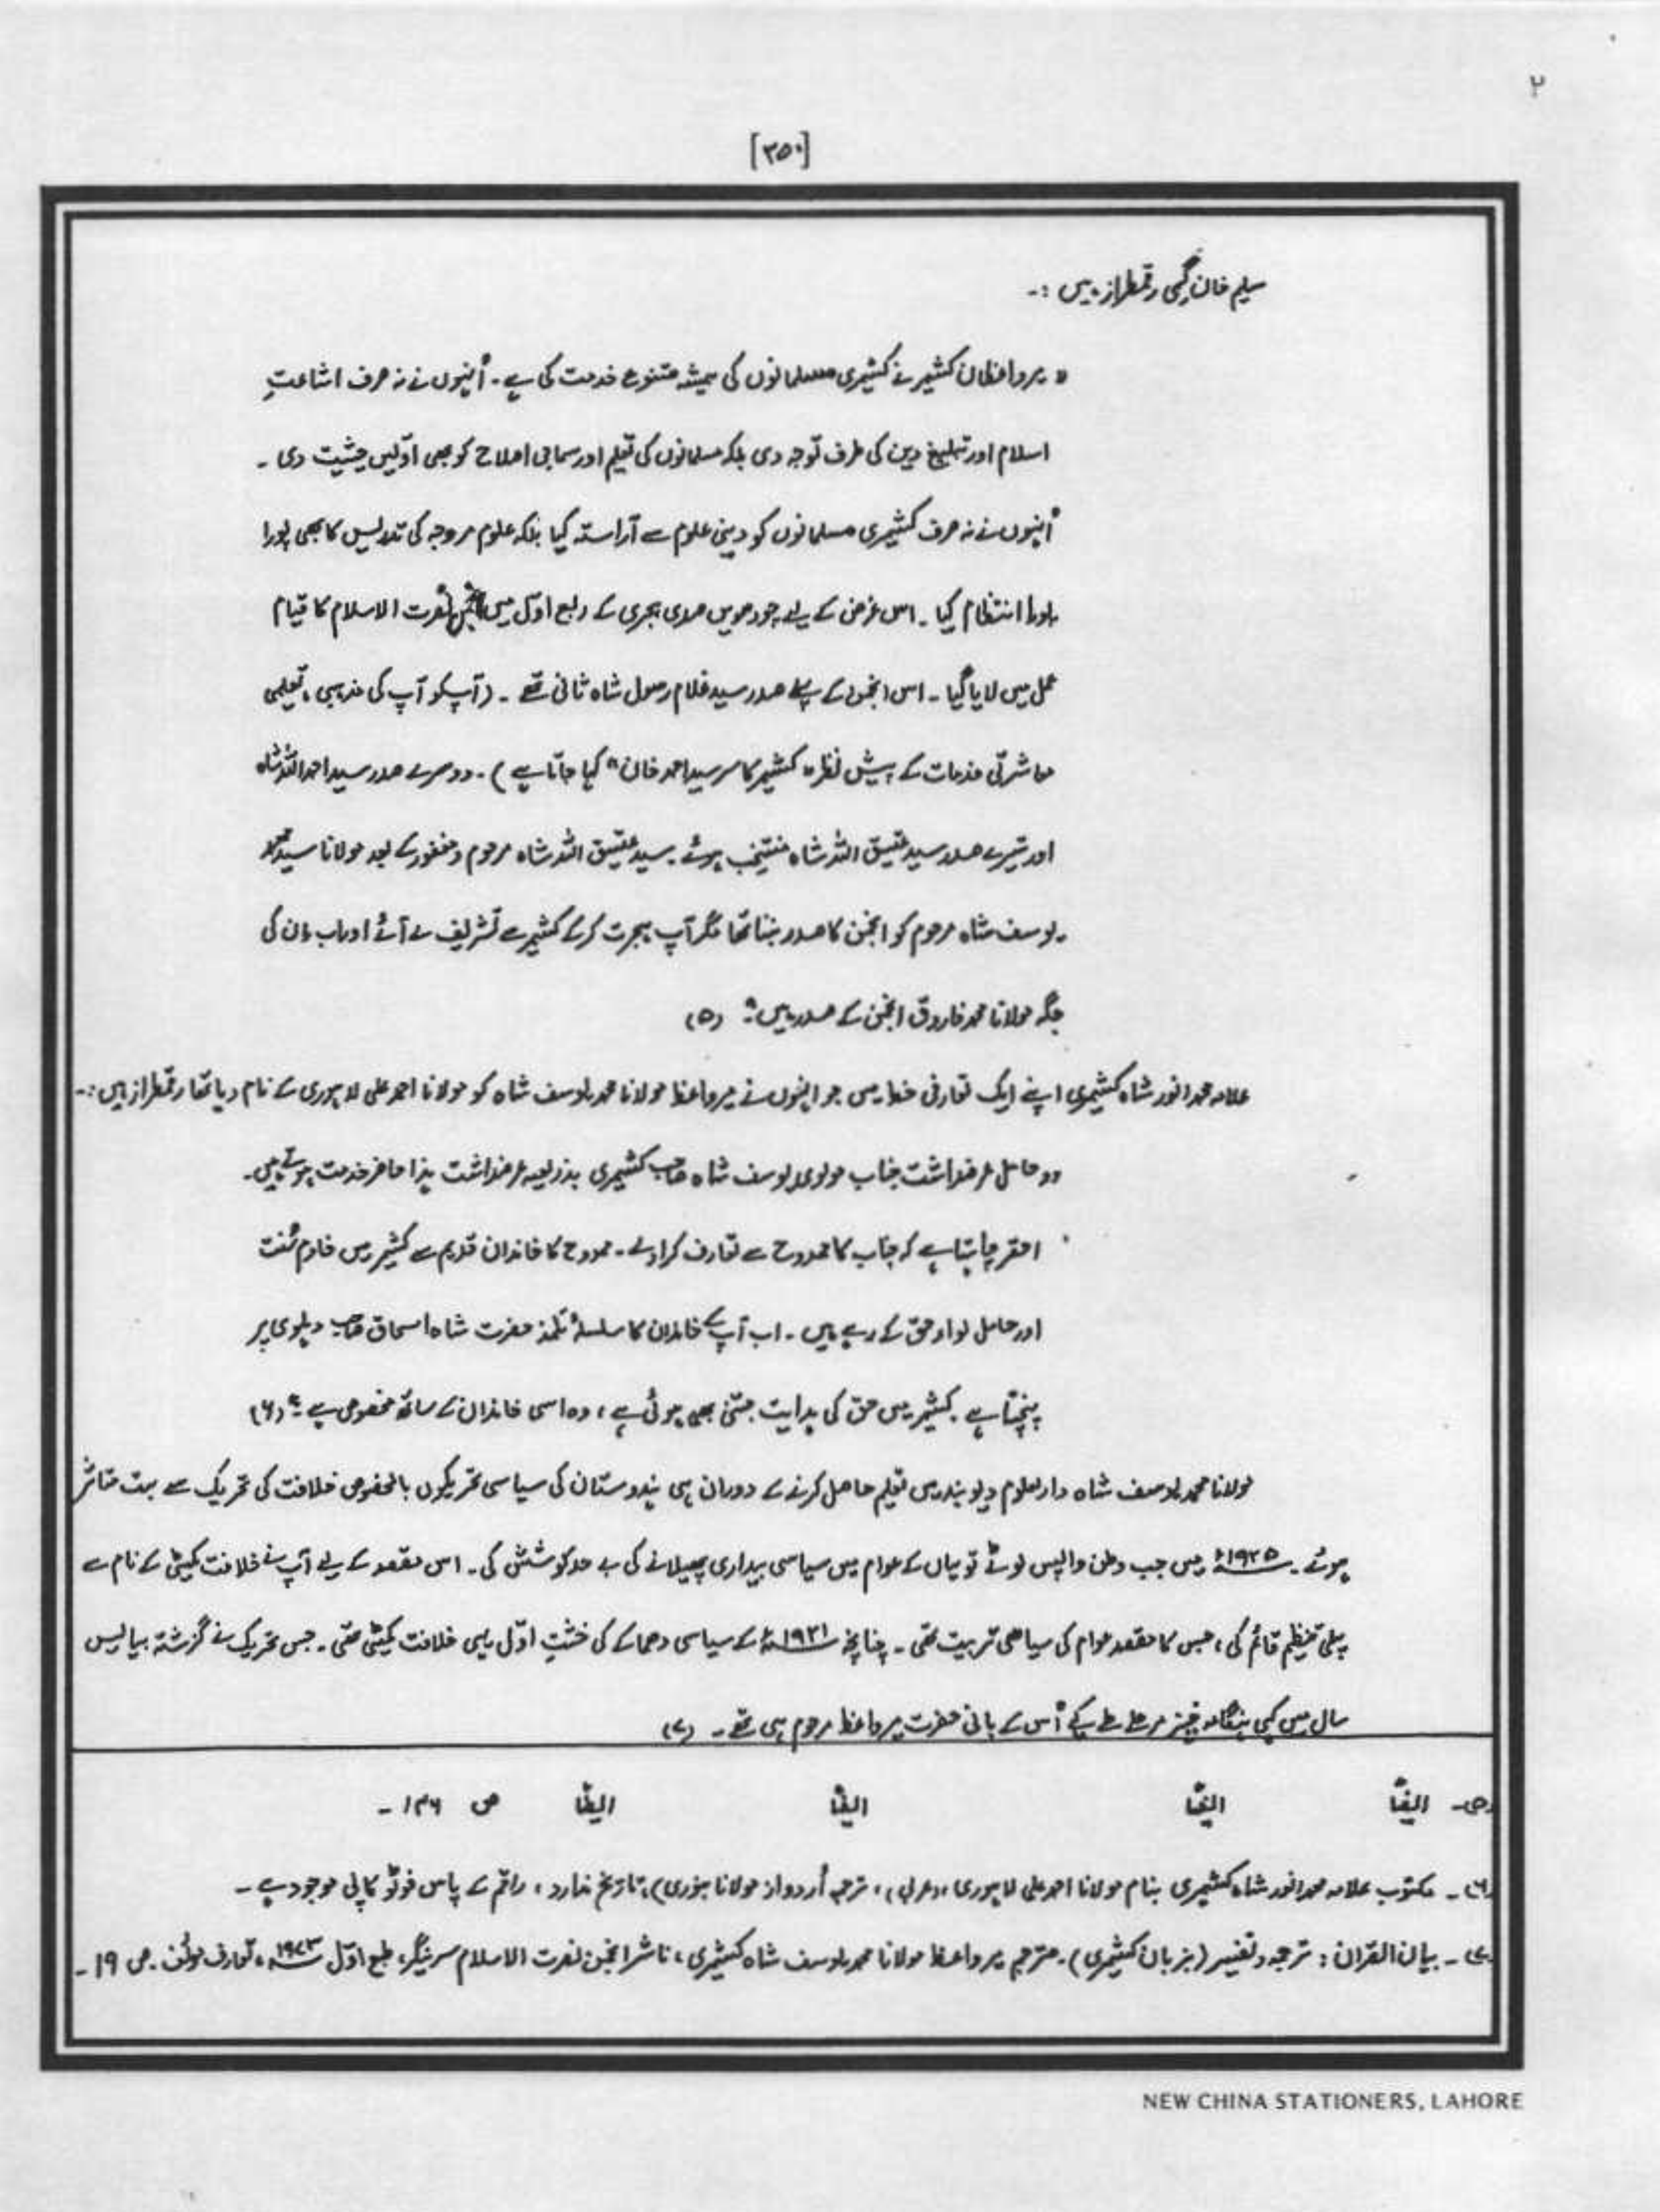 ۲
[۳۵۰]
سلیم خان گمی رقمطراز ہیں :۔
" میر واعظان کشمیر نے کشمیری مسلمانوں کی ہمیشہ متنوع خدمت کی ہے ۔ اُنہوں نے نہ صرف اشاعتِ
اسلام اور تبلیغ دین کی طرف توجہ دی بلکہ مسلمانوں کی تعلیم اور سماجی اصلاح کو بھی اوّلیں حیثیت دی ۔
اُنہوں نے نہ صرف کشمیری مسلمانوں کو دینی علوم سے آراستہ کیا بلکہ علوم مروجہ کی تدریس کا بھی پورا
پورا انتظام کیا ۔ اس غرض کے لیے چودھویں صدی ہجری کے ربع اوّل میں انجمن نصرت الاسلام کا قیام
عمل میں لایا گیا ۔ اس انجمن کے پہلے صدر سید غلام رسول شاہ ثانی تھے ۔ (آپ کو آپ کی مذہبی ، تعلیمی
معاشرتی خدمات کے پیش نظر " کشمیر کا سر سید احمد خان " کہا جاتا ہے ) ۔ دوسرے صدر سید احمد اللہ شاہ
اور تیسرے صدر سید عتیق اللہ شاہ منتخب ہوئے ۔ سید عتیق اللہ شاہ مرحوم و مغفور کے بعد مولانا سید محمد
یوسف شاہ مرحوم کو انجمن کا صدر بننا تھا مگر آپ ہجرت کرکے کشمیر سے تشریف لے آئے اور اب ان کی
جگہ مولانا محمد فاروق انجمن کے صدر ہیں ۔" (۵)
علامہ محمد انور شاہ کشمیری اپنے ایک تعارفی خط میں جو انہوں نے میر واعظ مولانا محمد یوسف شاہ کو مولانا احمد علی لاہوری کے نام دیا تھا رقمطراز ہیں :۔
" حامل عرضداشت جناب مولوی یوسف شاہ صاحب کشمیری بذریعہ عرضداشت ہذا حاضر خدمت ہوتے ہیں ۔
احقر چاہتا ہے کہ جناب کا ممدوح سے تعارف کرادے ۔ ممدوح کا خاندان قدیم سے کشمیر میں خادم سُنت
اور حامل لواءِ حق کے رہے ہیں ۔ اب آپ کے خاندان کا سلسلۂ تلمذ حضرت شاہ اسحاق صاحب دہلوی پر
پہنچتا ہے ۔ کشمیر میں حق کی ہدایت جتنی بھی ہوئی ہے ، وہ اسی خاندان کے ساتھ مخصوص ہے ۔" (۶)
مولانا محمد یوسف شاہ دارالعلوم دیوبند میں تعلیم حاصل کرنے کے دوران ہی ہندوستان کی سیاسی تحریکوں بالخصوص خلافت کی تحریک سے بہت متاثر
ہوئے ۔ ۱۹۲۵ء میں جب وطن واپس لوٹے تو یہاں کے عوام میں سیاسی بیداری پھیلانے کی بے حد کوشش کی ۔ اس مقصد کے لیے آپ نے خلافت کمیٹی کے نام سے
پہلی تنظیم قائم کی ، جس کا مقصد عوام کی سیاسی تربیت تھی ۔ چنانچہ ۱۹۳۱ء کے سیاسی دھماکے کی خشتِ اوّل یہی خلافت کمیٹی تھی ۔ جس تحریک نے گزشتہ بیالیس
سال میں کئی ہنگامہ خیز مرحلے طے کیے اُس کے بانی حضرت میر واعظ مرحوم ہی تھے ۔ (۷)
(۵)۔ ایضًا ایضًا ایضًا ایضًا ص ۱۳۶ ۔
(۶) ۔ مکتوب علامہ محمد انور شاہ کشمیری بنام مولانا احمد علی لاہوری ، (عربی) ، ترجمہ اُردو از مولانا بنوری) ، تاریخ ندارد ، راقم کے پاس فوٹو کاپی موجود ہے ۔
(۷) ۔ بیان القرآن : ترجمہ و تفسیر (بزبان کشمیری) ۔ مترجم میر واعظ مولانا محمد یوسف شاہ کشمیری ، ناشر انجمن نصرت الاسلام سرینگر ، طبع اوّل ۱۹۷۳ء ، تعارف مؤلف ۔ ص ۱۹ ۔
NEW CHINA STATIONERS, LAHORE